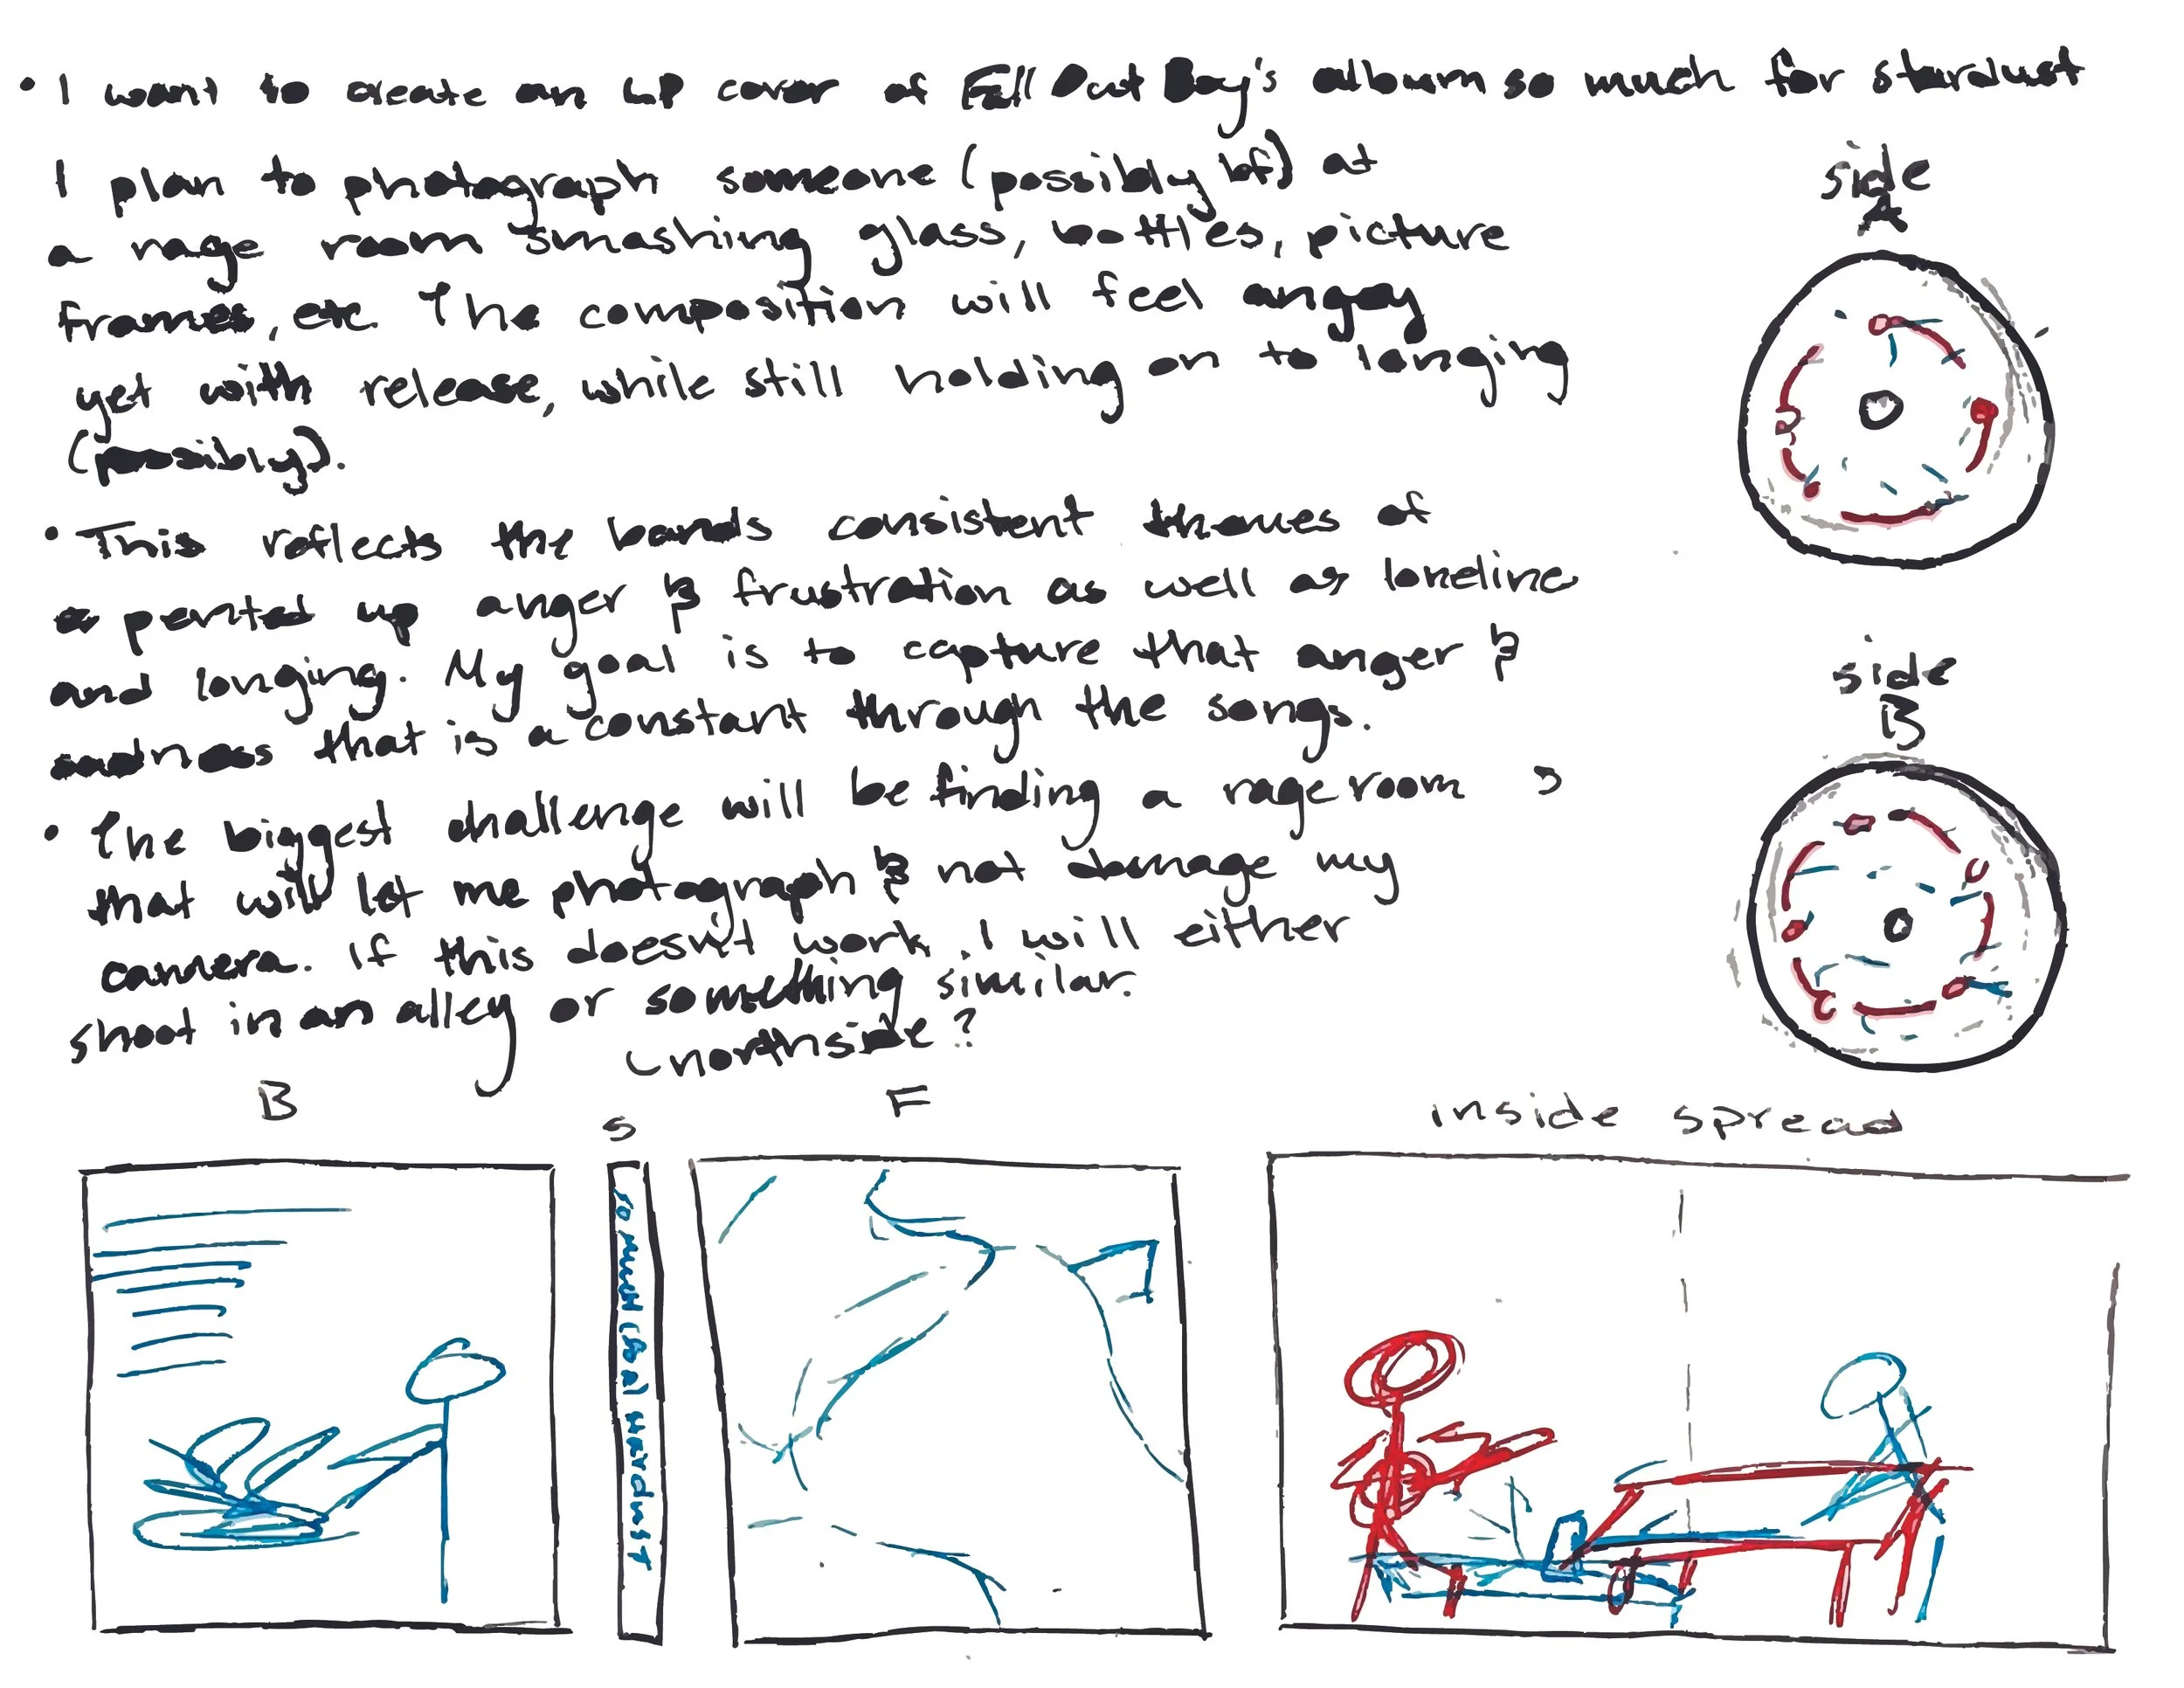 • I want to create an LP cover of Fall Out Boy's album so much for stardust
I plan to photograph someone (possibly bf) at
a rage room smashing glass, bottles, picture
frames, etc. The composition will feel angry
yet with release, while still holding on to longing
(possibly).
• This reflects the bands consistent themes of
pented up anger & frustration as well as loneline
and longing. My goal is to capture that anger &
madness that is a constant through the songs.
• The biggest challenge will be finding a rage room
that will let me photograph & not damage my
camera. If this doesn't work, I will either
shoot in an alley or something similar.
northside?
side
A
side
B
B
S
F
inside spread
SO MUCH